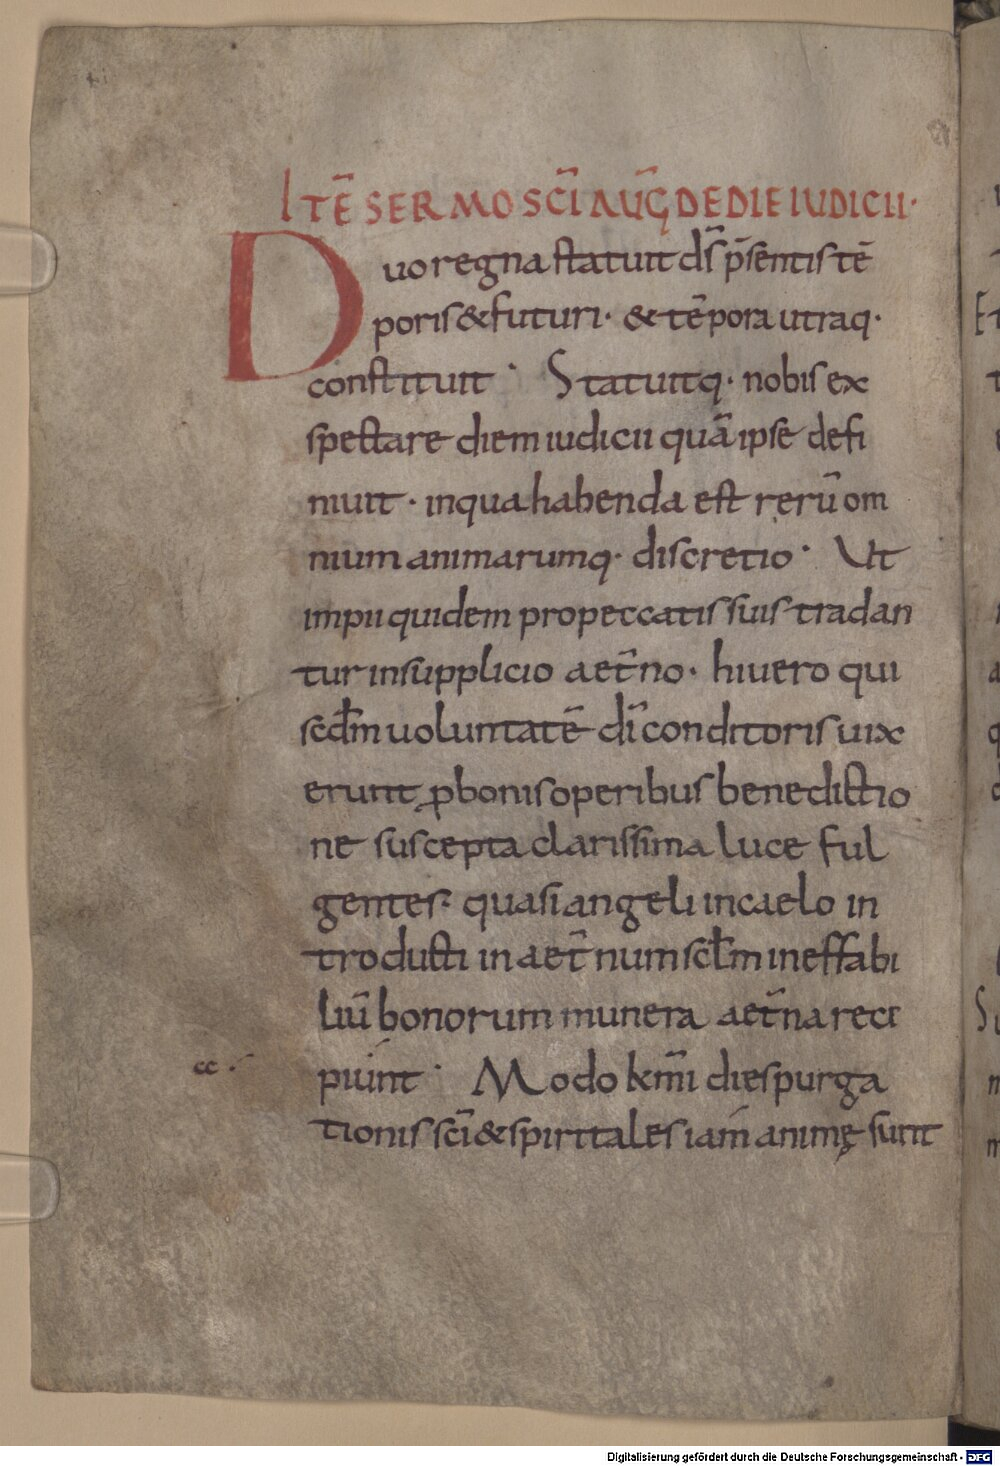 ITĒ SERMO SC̄I AUḠ DE DIE IUDICII·
Duo regna statuit dS̄ p̄sentis tē
poris & futuri· & tēpora utraq·
constituit· Statuitq· nobis ex
spectare diem iudicii quā ipse defi
niuit· inqua habenda est rerū om
nium animarumq· discretio· Ut
impii quidem propeccatis suis tradan
tur insupplicio aet̄no· hiuero qui
scd̄m uoluntatē dī conditoris uix
erunt ꝓbonis operibus benedictio
ne suscepta clarissima luce ful
gentes· quasi angeli incaelo in
troducti in aet̄num scd̄m ineffabi
liū bonorum munera aet̄na reci
piunt· Modo km̄i dies purga
tionis sc̄i & spiritales iam animę sunt
cc·
Digitalisierung gefördert durch die Deutsche Forschungsgemeinschaft - DFG